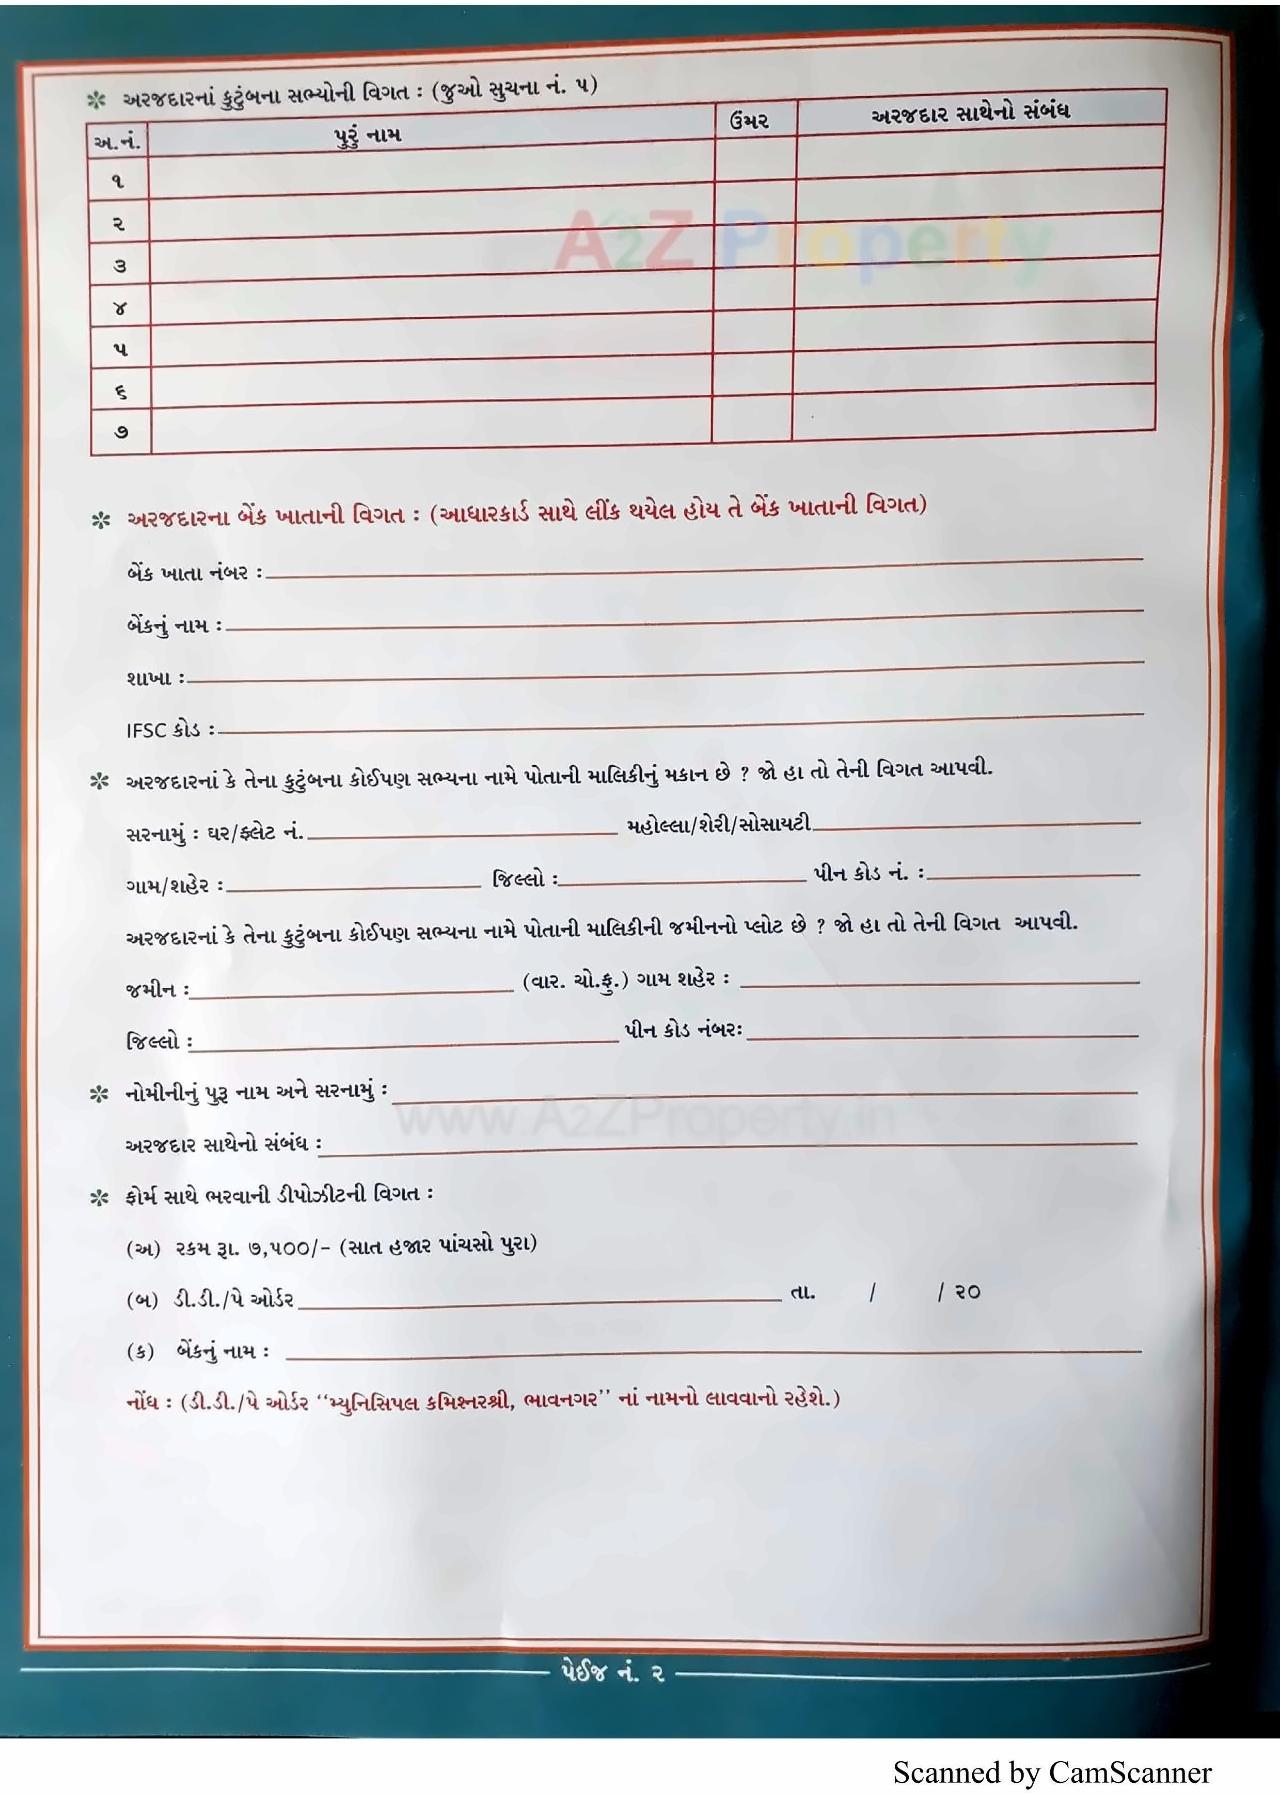 અરજદારનાં કુટુંબના સભ્યોની વિગત : (જુઓ સુચના નં. ૫)
અ.નં. પુરું નામ ઉંમર અરજદાર સાથેનો સંબંધ
૧
૨
૩
૪
૫
૬
૭
A2Z Property
અરજદારના બેંક ખાતાની વિગત : (આધારકાર્ડ સાથે લીંક થયેલ હોય તે બેંક ખાતાની વિગત)
બેંક ખાતા નંબર :
બેંકનું નામ :
શાખા :
IFSC કોડ :
અરજદારનાં કે તેના કુટુંબના કોઈપણ સભ્યના નામે પોતાની માલિકીનું મકાન છે ? જો હા તો તેની વિગત આપવી.
સરનામું : ઘર/ફ્લેટ નં. મહોલ્લા/શેરી/સોસાયટી
ગામ/શહેર : જિલ્લો : પીન કોડ નં. :
અરજદારનાં કે તેના કુટુંબના કોઈપણ સભ્યના નામે પોતાની માલિકીની જમીનનો પ્લોટ છે ? જો હા તો તેની વિગત આપવી.
જમીન : (વાર. ચો.ફુ.) ગામ શહેર :
જિલ્લો : પીન કોડ નંબરઃ
નોમીનીનું પુરૂ નામ અને સરનામું :
www.A2ZProperty.in
અરજદાર સાથેનો સંબંધ :
ફોર્મ સાથે ભરવાની ડીપોઝીટની વિગત :
(અ) રકમ રૂા. ૭,૫૦૦/- (સાત હજાર પાંચસો પુરા)
(બ) ડી.ડી./પે ઓર્ડર તા. / / ૨૦
(ક) બેંકનું નામ :
નોંધ : (ડી.ડી./પે ઓર્ડર “મ્યુનિસિપલ કમિશ્નરશ્રી, ભાવનગર” નાં નામનો લાવવાનો રહેશે.)
પેઈજ નં. ૨
Scanned by CamScanner